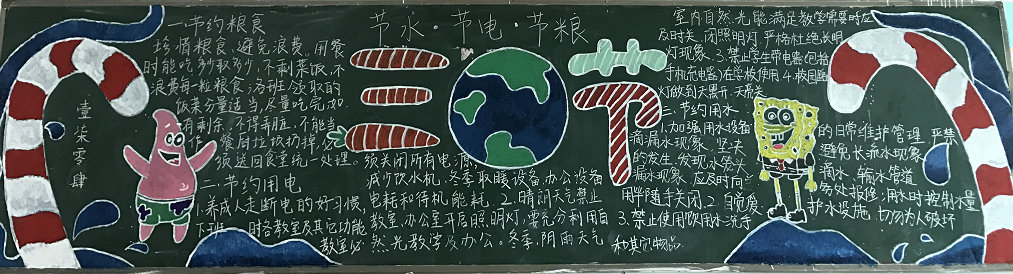 节水·节电·节粮
三节
壹柒零肆
一.节约粮食
珍惜粮食,避免浪费,用餐
时能吃多少取多少,不剩菜饭,不
浪费每一粒粮食,各班领取的
饭菜分量适当,尽量吃完,如
有剩余,不得弄脏,不能当
作餐厨垃圾扔掉,必
须送回食堂统一处理。
二.节约用电
1.养成人走断电的好习惯,
下班时各教室及其它功能
教室必
须关闭所有电源,
减少饮水机、冬季取暖设备、办公设备
电耗和待机能耗。2.晴朗天气禁止
教室、办公室开启照明灯,要充分利用自
然光教学及办公。冬季、阴雨天气
室内自然光能满足教学需要时应
及时关闭照明灯,严格杜绝长明
灯现象。3.禁止学生带电器(包括
手机充电器)在学校使用。4.校园路
灯做到天黑开、天亮关
三.节约用水
1.加强用水设备
的日常维护管理,严禁
滴漏水现象,坚决
避免长流水现象
的发生,发现水管、水
滴水、输水管道
漏水现象,应及时向
务处报修,用水时控制水量
用毕随手关闭。2.自觉爱
护水设施,切勿有人破坏
3.禁止使用饮用水洗手
和其它物品